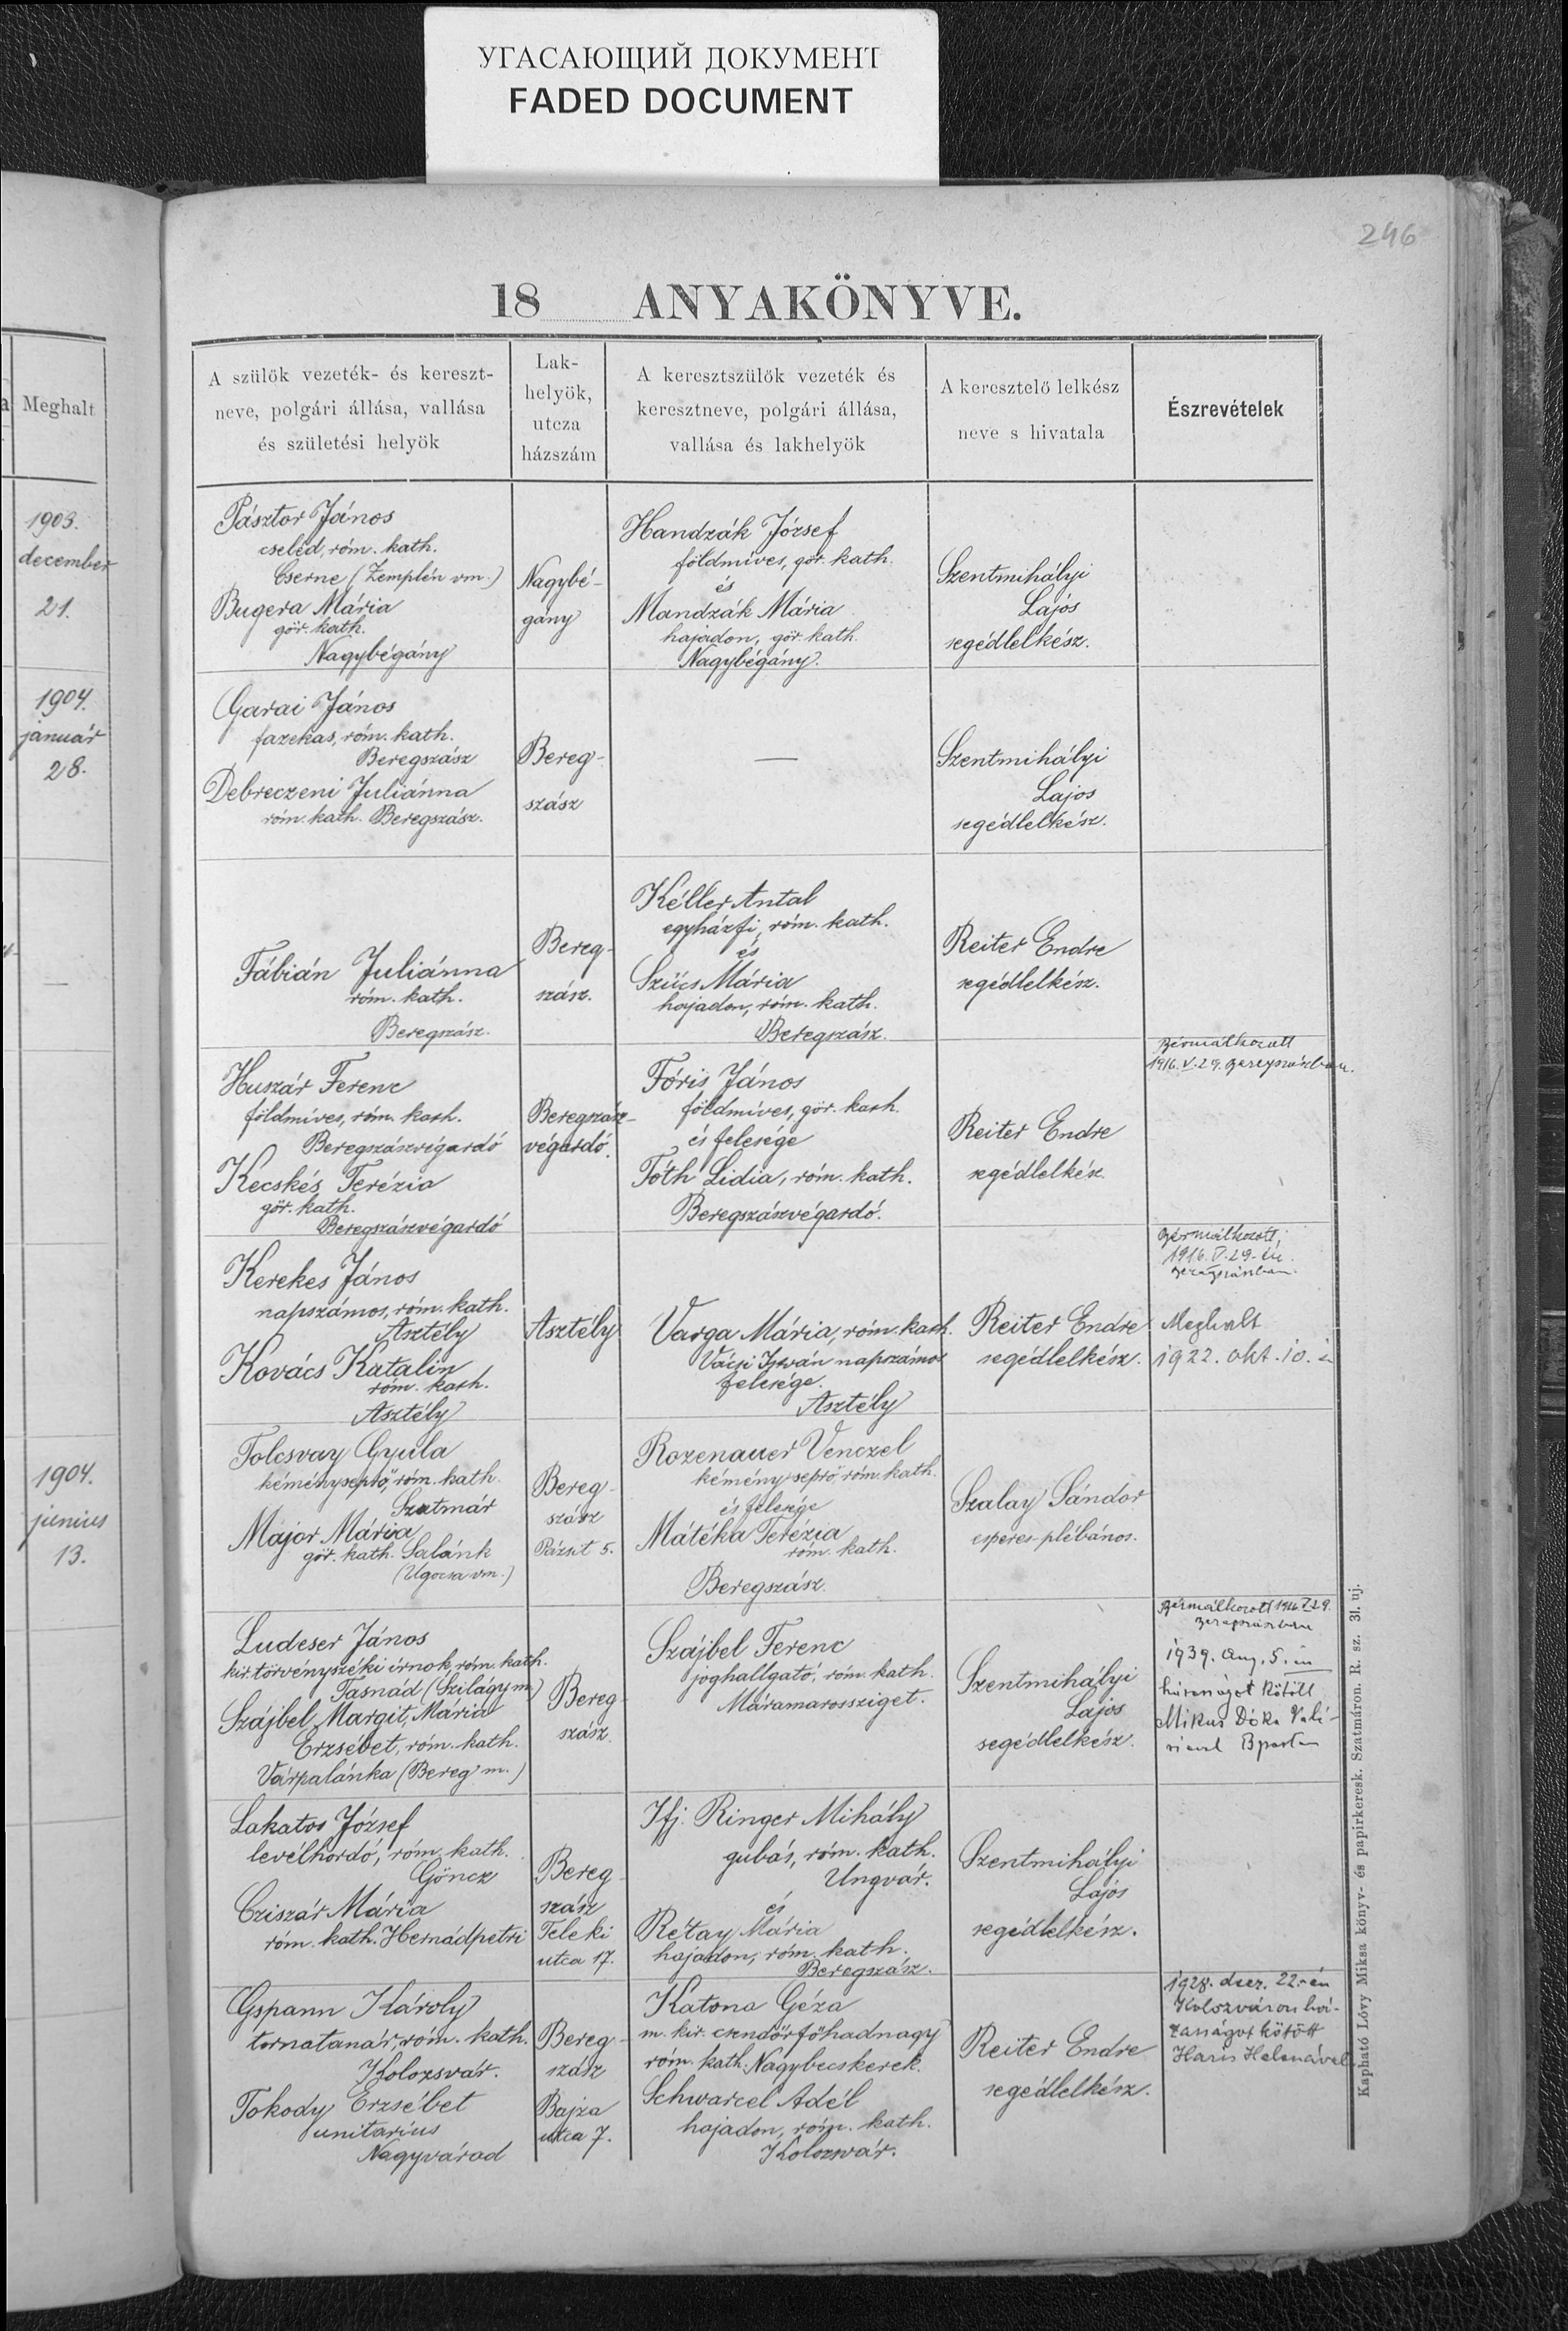 УГАСАЮЩИЙ ДОКУМЕНТ
FADED DOCUMENT
246
18 ANYAKÖNYVE.
Meghalt
1903.
december
21.
1904.
január
28.
1904.
junius
13.
A szülők vezeték- és kereszt-
neve, polgári állása, vallása
és születési helyök
Lak-
helyök,
utcza
házszám
A keresztszülők vezeték és
keresztneve, polgári állása,
vallása és lakhelyök
A keresztelő lelkész
neve s hivatala
Észrevételek
Pásztor János
cseléd, róm. kath.
Cserne (Zemplén vm.)
Bugera Mária
gör. kath.
Nagybégány
Nagybé-
gány
Handzák József
földmíves, gör. kath.
és
Mandzák Mária
hajadon, gör. kath.
Nagybégány.
Szentmihályi
Lajos
segédlelkész.
Garai János
fazekas, róm. kath.
Beregszász
Debreczeni Juliánna
róm. kath. Beregszász.
Bereg-
szász
—
Szentmihályi
Lajos
segédlelkész.
Fábián Juliánna
róm. kath.
Beregszász.
Bereg-
szász.
Kéller Antal
egyházfi, róm. kath.
és
Szűcs Mária
hajadon, róm. kath.
Beregszász.
Reiter Endre
segédlelkész.
Huszár Ferenc
földmíves, róm. kath.
Beregszászvégardó
Kecskés Terézia
gör. kath.
Beregszászvégardó
Beregszász-
végardó.
Fóris János
földmíves, gör. kath.
és felesége
Tóth Lidia, róm. kath.
Beregszászvégardó.
Reiter Endre
segédlelkész.
Bérmálkozott
1916. V. 29. Beregszászban.
Kerekes János
napszámos, róm. kath.
Asztély
Kovács Katalin
róm. kath.
Asztély
Asztély
Varga Mária, róm. kath.
Vácsi István napszámos
felesége.
Asztély
Reiter Endre
segédlelkész.
Bérmálkozott
1916. V. 29-én
Beregszászban.
Meghalt
1922. okt. 10.
Tolcsvay Gyula
kéményseprő, róm. kath.
Szatmár
Major Mária
gör. kath. Salánk
(Ugocsa vm.)
Bereg-
szász
Pázsit 5.
Rozenauer Venczel
kéményseprő, róm. kath.
és felesége
Mátéka Terézia
róm. kath.
Beregszász.
Szalay Sándor
esperes-plébános.
Ludeser János
kir. törvényszéki írnok, róm. kath.
Tasnád (Szilágy m.)
Szájbel Margit, Mária
Erzsébet, róm. kath.
Várpalánka (Bereg m.)
Bereg-
szász.
Szájbel Ferenc
joghallgató, róm. kath.
Máramarossziget.
Szentmihályi
Lajos
segédlelkész.
Bérmálkozott 1916. V. 29.
Beregszászban
1939. aug. 5.-én
házasságot kötött
Mikus Dóka Valé-
riával Bpesten
Lakatos József
levélhordó, róm. kath.
Göncz
Cziszár Mária
róm. kath. Hernádpetri
Bereg-
szász
Teleki
utca 17.
Ifj. Ringer Mihály
gubás, róm. kath.
Ungvár.
és
Rétay Mária
hajadon, róm. kath.
Beregszász.
Szentmihályi
Lajos
segédlelkész.
Gspann Károly
tornatanár, róm. kath.
Kolozsvár.
Tokody Erzsébet
unitárius
Nagyvárad
Bereg-
szász
Bajza
utca 7.
Katona Géza
m. kir. csendőrfőhadnagy
róm. kath. Nagybecskerek.
Schwarcel Adél
hajadon, róm. kath.
Kolozsvár.
Reiter Endre
segédlelkész.
1928. decz. 22-én
Kolozsváron há-
zasságot kötött
Haris Helenával
Kapható Lővy Miksa könyv- és papirkeresk. Szatmáron. R. sz. 3l. uj.